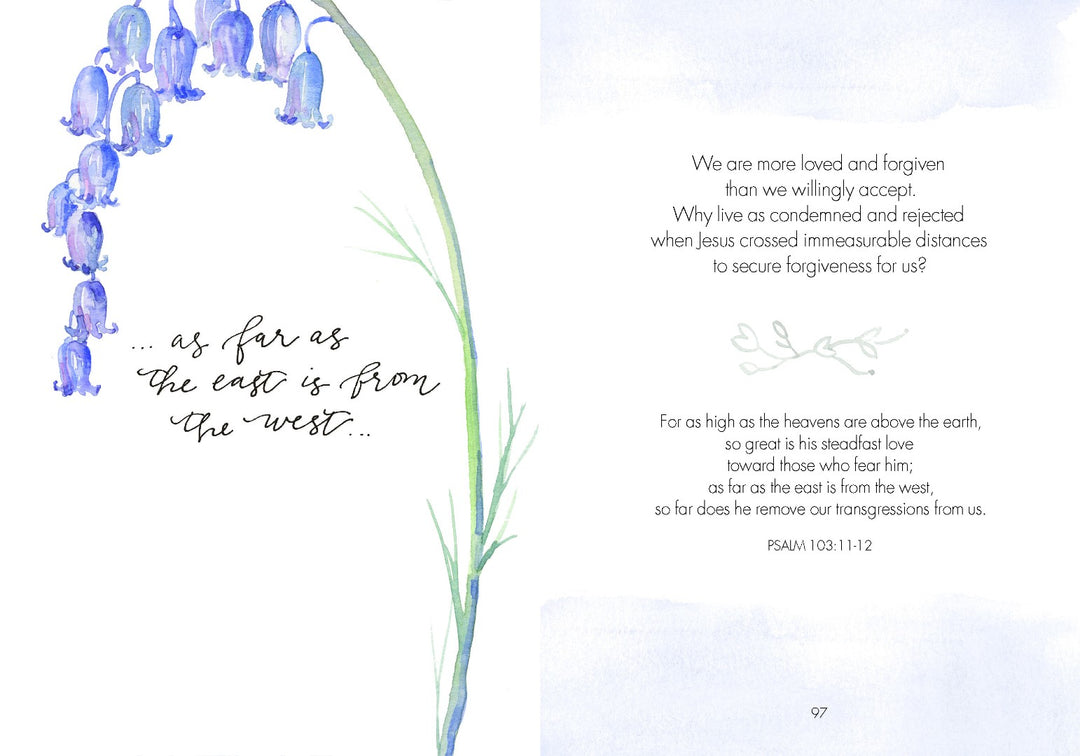 ... as far as
the east is from
the west...
We are more loved and forgiven
than we willingly accept.
Why live as condemned and rejected
when Jesus crossed immeasurable distances
to secure forgiveness for us?
For as high as the heavens are above the earth,
so great is his steadfast love
toward those who fear him;
as far as the east is from the west,
so far does he remove our transgressions from us.
PSALM 103:11-12
97